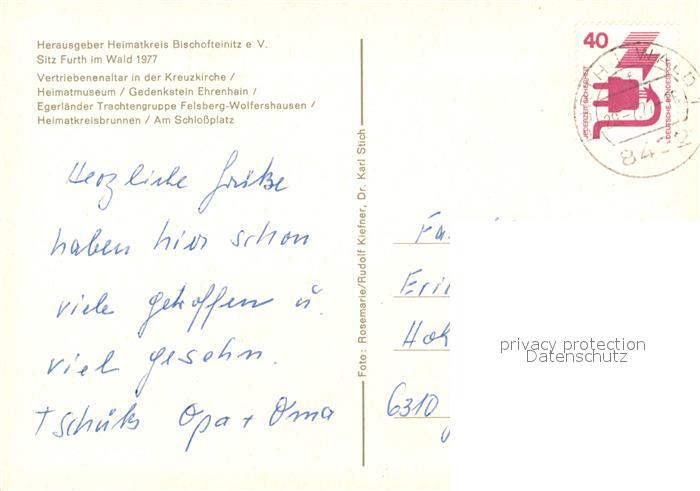 Herausgeber Heimatkreis Bischofteinitz e V.
Sitz Furth im Wald 1977
Vertriebenenaltar in der Kreuzkirche /
Heimatmuseum / Gedenkstein Ehrenhain /
Egerländer Trachtengruppe Felsberg-Wolfershausen /
Heimatkreisbrunnen / Am Schloßplatz
Herzliche Grüße
haben hier schon
viele getroffen u.
viel gesehn.
tschüß Opa + Oma
Foto: Rosemarie/Rudolf Kiefner, Dr. Karl Stich
40
JEDERZEIT SICHERHEIT
DEUTSCHE BUNDESPOST
WALD
8492
6310
privacy protection
Datenschutz